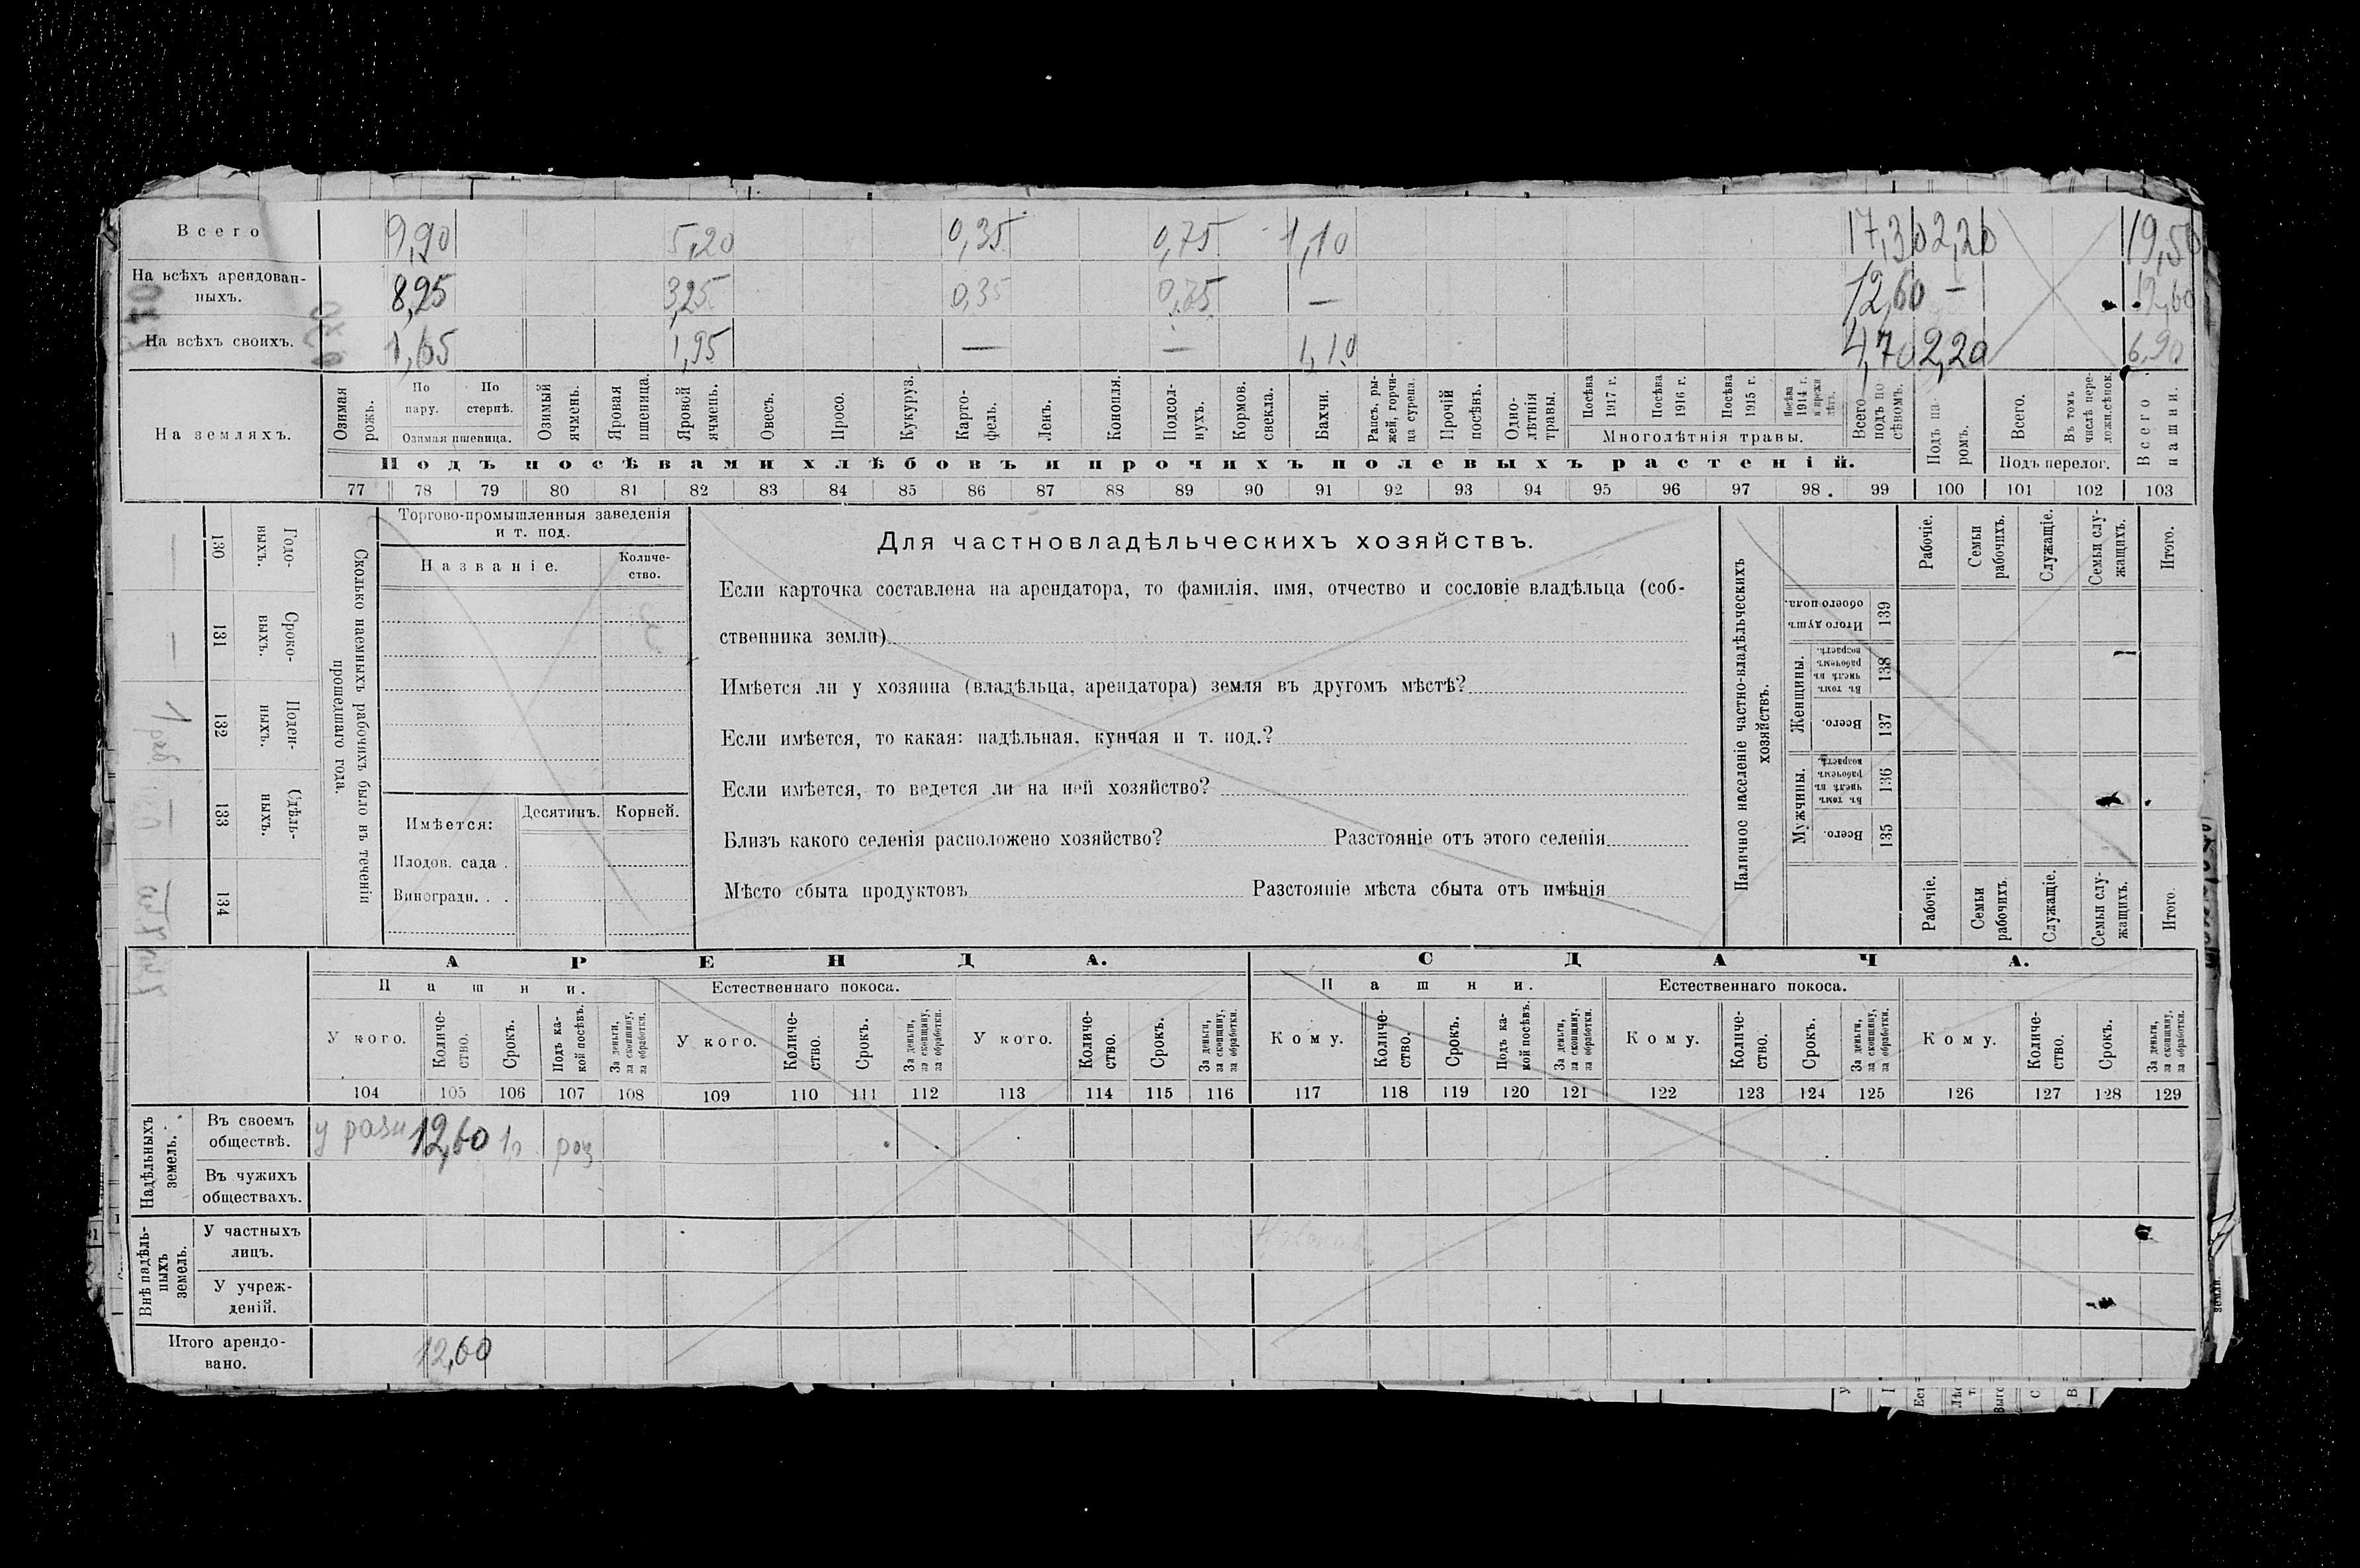 Всего 9,90 5,20 0,35 0,75 1,10 17,30 2,20 19,50
На всѣхъ арендован-
ныхъ. 8,25 3,25 0,35 0,75 — 12,60 — 12,60
На всѣхъ своихъ. 1,65 1,95 — — 1,10 4,70 2,20 6,90
На земляхъ.
Озимая рожь.
По пару.
По стернѣ.
Озимая пшеница.
Озимый ячмень.
Яровая пшеница.
Яровой ячмень.
Овесъ.
Просо.
Кукуруз.
Карто-
фель.
Ленъ.
Конопля.
Подсол-
нухъ.
Кормов. свекла.
Бахчи.
Рапсъ, ры-
жей, горчи-
ца сурепа.
Прочій посѣвъ.
Одно-
лѣтнія травы.
Посѣва 1917 г.
Посѣва 1916 г.
Посѣва 1915 г.
Посѣва 1914 г. и прежн. лѣтъ.
Многолѣтнія травы.
Всего подъ по-
сѣвомъ.
Подъ па-
ромъ.
Всего.
Въ томъ числѣ пере-
ложн.сѣнок.
Подъ перелог.
Всего пашни.
Подъ посѣвами хлѣбовъ и прочихъ полевыхъ растеній.
77 78 79 80 81 82 83 84 85 86 87 88 89 90 91 92 93 94 95 96 97 98 99 100 101 102 103
130 Годо-
выхъ. —
131 Сроко-
выхъ. —
132 Поден-
ныхъ. 1
133 Сдѣль-
ныхъ.
134
Сколько наемныхъ рабочихъ было въ теченіи
прошедшаго года.
Торгово-промышленныя заведенія
и т. под.
Названіе.
Количе-
ство.
Имѣется: Десятинъ. Корней.
Плодов. сада .
Виноградн. . .
Для частновладѣльческихъ хозяйствъ.
Если карточка составлена на арендатора, то фамилія, имя, отчество и сословіе владѣльца (соб-
ственника земли)
Имѣется ли у хозяина (владѣльца, арендатора) земля въ другомъ мѣстѣ?
Если имѣется, то какая: надѣльная, купчая и т. под.?
Если имѣется, то ведется ли на ней хозяйство?
Близъ какого селенія расположено хозяйство? Разстояніе отъ этого селенія
Мѣсто сбыта продуктовъ Разстояніе мѣста сбыта отъ имѣнія
Наличное населеніе частно-владѣльческихъ
хозяйствъ.
Рабочіе.
Семьи рабочихъ.
Служащіе.
Семьи слу-
жащихъ.
Итого.
Итого душъ обоего пола. 139
Женщины.
Въ томъ числѣ въ рабочемъ возрастѣ. 138
Всего. 137
Мужчины.
Въ томъ числѣ въ рабочемъ возрастѣ. 136
Всего. 135
Рабочіе.
Семьи рабочихъ.
Служащіе.
Семьи слу-
жащихъ.
Итого.
АРЕНДА. СДАЧА.
Пашни. Естественнаго покоса. Пашни. Естественнаго покоса.
У кого.
Количе-
ство.
Срокъ.
Подъ ка-
кой посѣвъ.
За деньги, за скопщину, за обработки.
У кого.
Количе-
ство.
Срокъ.
За деньги, за скопщину, за обработки.
У кого.
Количе-
ство.
Срокъ.
За деньги, за скопщину, за обработки.
Кому.
Количе-
ство.
Срокъ.
Подъ ка-
кой посѣвъ.
За деньги, за скопщину, за обработки.
Кому.
Количе-
ство.
Срокъ.
За деньги, за скопщину, за обработки.
Кому.
Количе-
ство.
Срокъ.
За деньги, за скопщину, за обработки.
104 105 106 107 108 109 110 111 112 113 114 115 116 117 118 119 120 121 122 123 124 125 126 127 128 129
Надѣльныхъ земель.
Въ своемъ
обществѣ. у разн 12,60 1
Въ чужихъ
обществахъ.
Внѣ надѣль-
ныхъ земель.
У частныхъ
лицъ.
У учреж-
деній.
Итого арендо-
вано. 12,60